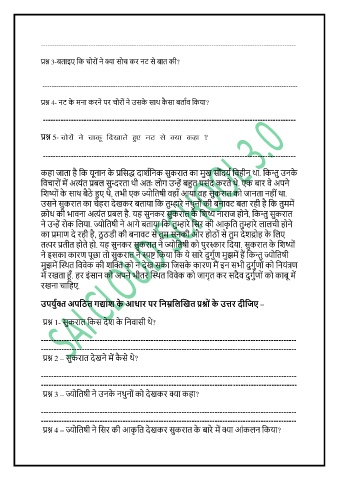 प्रश्न 3-बताइए कि चोरों ने क्या सोच कर नट से बात की?
प्रश्न 4- नट के मना करने पर चोरों ने उसके साथ कैसा बर्ताव किया?
प्रश्न 5- चोरों ने चाकू दिखाते हुए नट से क्या कहा ?
कहा जाता है कि यूनान के प्रसिद्ध दार्शनिक सुकरात का मुख सौंदर्य विहीन था. किन्तु उनके
विचारों में अत्यंत प्रबल सुन्दरता थी अतः लोग उन्हें बहुत पसंद करते थे. एक बार वे अपने
शिष्यों के साथ बैठे हुए थे, तभी एक ज्योतिषी वहाँ आया वह सुकरात को जानता नहीं था.
उसने सुकरात का चेहरा देखकर बताया कि तुम्हारे नथुनों की बनावट बता रही है कि तुममें
क्रोध की भावना अत्यंत प्रबल है. यह सुनकर सुकरात के शिष्य नाराज होने, किन्तु सुकरात
ने उन्हें रोक लिया. ज्योतिषी ने आगे बताया कि तुम्हारे सिर की आकृति तुम्हारे लालची होने
का प्रमाण दे रही है, ठुड्डी की बनावट से तुम सनकी और होंठों से तुम देशद्रोह के लिए
तत्पर प्रतीत होते हो. यह सुनकर सुकरात ने ज्योतिषी को पुरस्कार दिया. सुकरात के शिष्यों
ने इसका कारण पूछा तो सुकरात ने स्पष्ट किया कि ये सारे दुर्गुण मुझमें हैं किन्तु ज्योतिषी
मुझमें स्थित विवेक की शक्ति को न देख सका जिसके कारण मैं इन सभी दुर्गुणों को नियंत्रण
में रखता हूँ. हर इंसान को अपने भीतर स्थित विवेक को जागृत कर सदैव दुर्गुणों को काबू में
रखना चाहिए.
उपर्युक्त अपठित गद्यांश के आधार पर निम्नलिखित प्रश्नों के उत्तर दीजिए –
प्रश्न 1- सुकरात किस देश के निवासी थे?
प्रश्न 2 – सुकरात देखने में कैसे थे?
प्रश्न 3 – ज्योतिषी ने उनके नथुनों को देखकर क्या कहा?
प्रश्न 4 – ज्योतिषी ने सिर की आकृति देखकर सुकरात के बारे में क्या आंकलन किया?